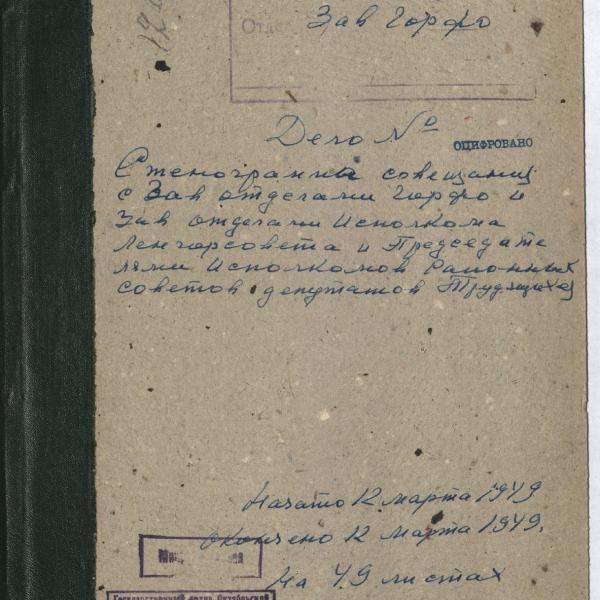 Зав Горфо
Дело №
ОЦИФРОВАНО
Стенограмма совещания
с Зав отделами Горфо и
Зав отделами Исполкома
Ленгорсовета и Председате
лями Исполкомов Районных
советов депутатов Трудящихся
Начато 12 марта 1949
Окончено 12 марта 1949.
На 49 листах
Государственный архив Октябрьской